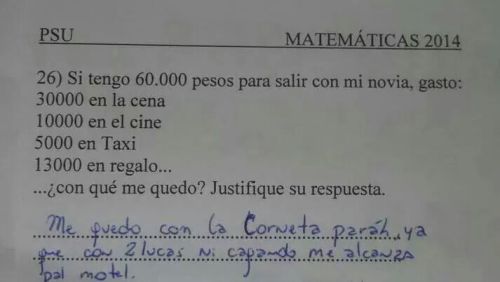 PSU MATEMÁTICAS 2014
26) Si tengo 60.000 pesos para salir con mi novia, gasto:
30000 en la cena
10000 en el cine
5000 en Taxi
13000 en regalo...
...¿con qué me quedo? Justifique su respuesta.
Me quedo con la Corneta paráh, ya
que con 2 lucas ni capando me alcanza
pal motel.